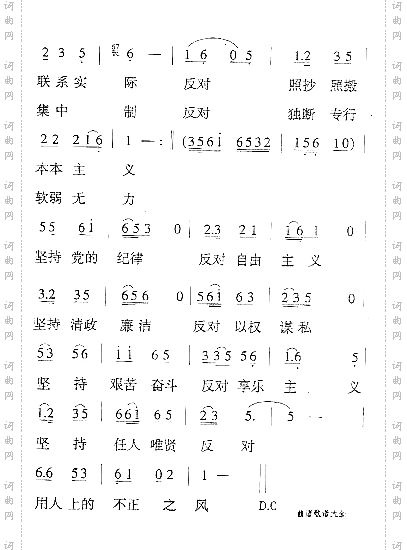 2 3 5 6 — | 1 6 0 5 | 1.2 3 5 |
联系实 际 反对 照抄 照搬
集中 制 反对 独断 专行
2 2 2 1 6 | 1 — :| (3561 6532 | 156 10) |
本本 主 义
软弱 无 力
5 5 6 1 | 6 5 3 0 | 2.3 2 1 | 1 6 1 0 |
坚持 党的 纪律 反对 自由 主 义
3.2 3 5 | 6 5 6 0 | 5 6 1 6 3 | 2 3 5 0 |
坚持 清政 廉洁 反对 以权 谋私
5 3 5 6 | i i 6 5 | 3 3 5 5 6 | 1 6 5 |
坚 持 艰苦 奋斗 反对 享乐 主 义
1.2 3 5 | 6 6 1 6 5 | 2 3 5. | 5 — |
坚 持 任人 唯贤 反 对
6.6 5 3 | 6 1 0 2 | 1 — ||
用人 上的 不正 之 风 D.C
词曲网
词曲网
词曲网
词曲网
词曲网
词曲网
词曲网
词曲网
词曲网
词曲网